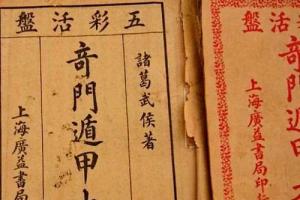 五彩活盤
諸葛武侯著
奇門遁甲
上海廣益書局
活盤
奇門遁甲
上海廣益書局印